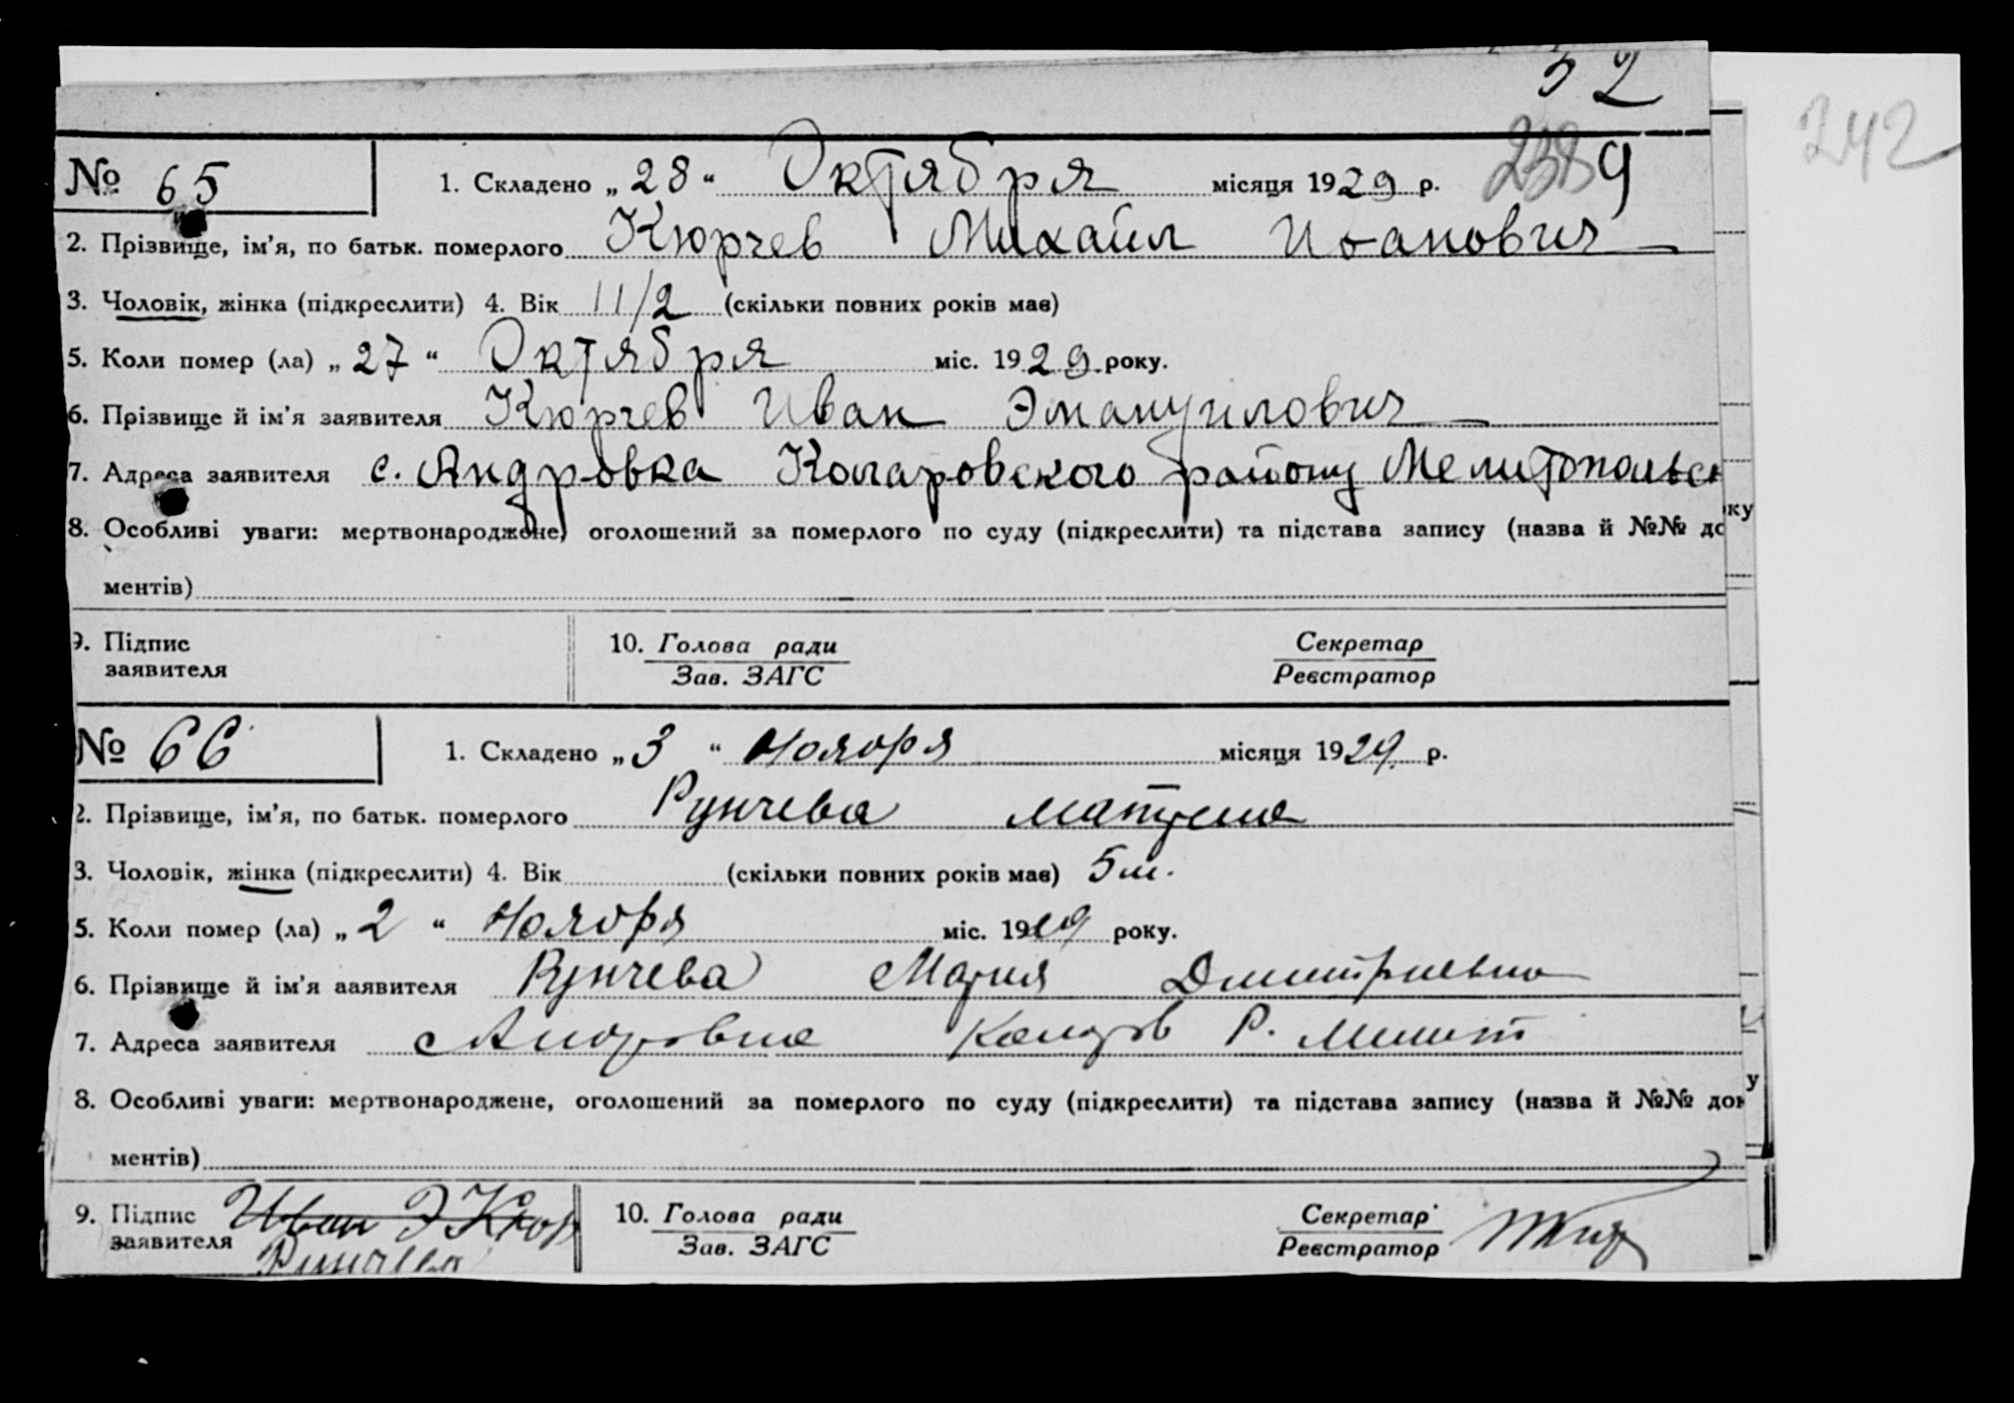 52
242
№ 65 1. Складено „28“ Октября місяця 1929 р. 9
2. Прізвище, ім'я, по батьк. померлого Кюрчев Михаил Иванович
3. Чоловік, жінка (підкреслити) 4. Вік 11/2 (скільки повних років має)
5. Коли помер (ла) „27“ Октября міс. 1929 року.
6. Прізвище й ім'я заявителя Кюрчев Иван Эмануилович
7. Адреса заявителя с. Андровка Коларовского району Мелитопольск
8. Особливі уваги: мертвонароджене, оголошений за померлого по суду (підкреслити) та підстава запису (назва й №№ до
ку
ментів)
9. Підпис заявителя 10. Голова ради Секретар
Зав. ЗАГС Реєстратор
№ 66 1. Складено „3“ Ноября місяця 1929 р.
2. Прізвище, ім'я, по батьк. померлого Рунчева
3. Чоловік, жінка (підкреслити) 4. Вік (скільки повних років має) 5 м.
5. Коли помер (ла) „2“ Ноября міс. 1929 року.
6. Прізвище й ім'я ааявителя Рунчева Мария Дмитриевна
7. Адреса заявителя с Андровка Коларов Р. Мелит
8. Особливі уваги: мертвонароджене, оголошений за померлого по суду (підкреслити) та підстава запису (назва й №№ док
у
ментів)
9. Підпис Иван Э Кюр 10. Голова ради Секретар
заявителя Рунчева Зав. ЗАГС Реєстратор